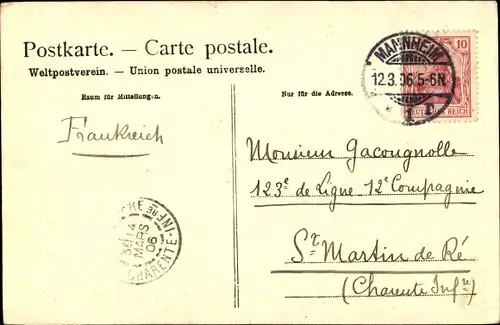 Postkarte. — Carte postale.
Weltpostverein. — Union postale universelle.
Raum für Mitteilungen.
Nur für die Adresse.
MANNHEIM
12.3.06.5-6N.
* 1 r
10
DEUTSCHES REICH
Frankreich
Monsieur Gacougnolle
123e de Ligne 12e Compagnie
St Martin de Ré
(Charente Infre)
RE
14
MARS
06
CHARENTE-INFRE